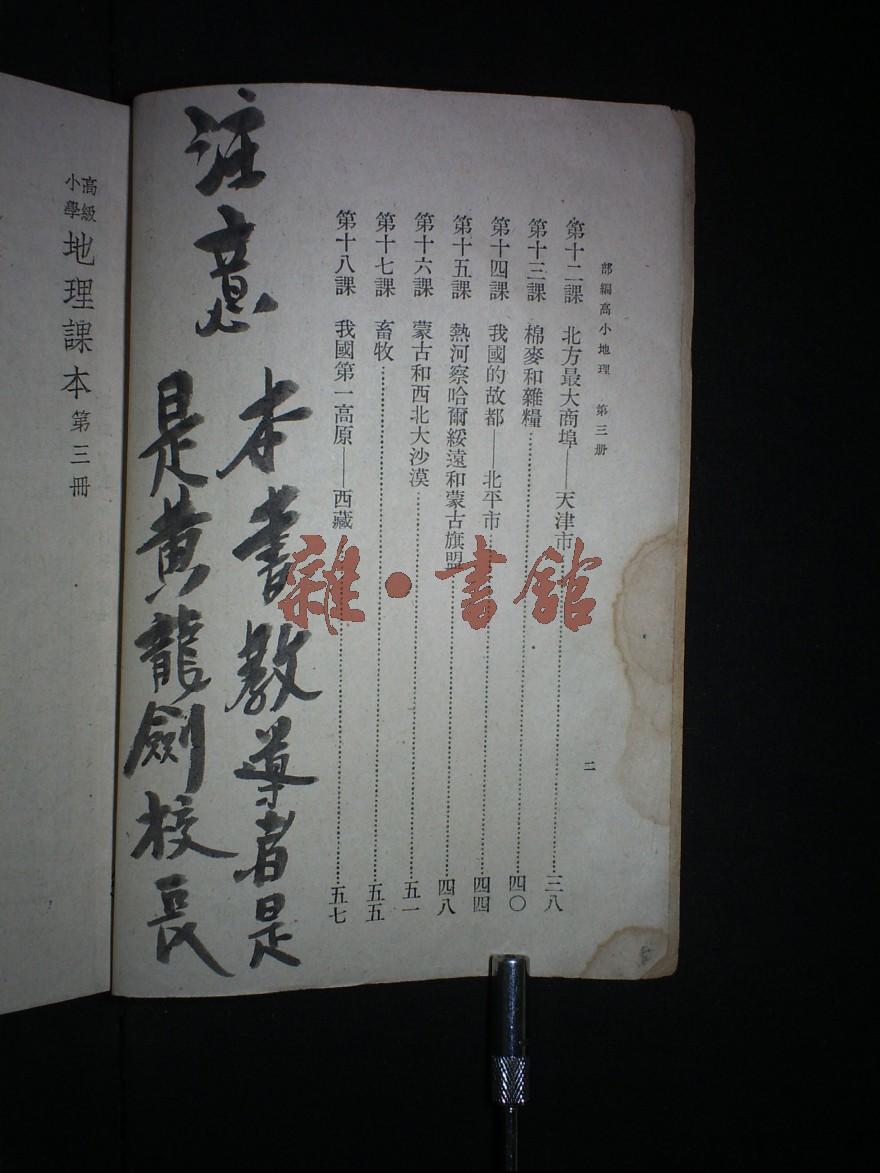 部編高小地理　第三册
第十二課　北方最大商埠——天津市……三八
第十三課　棉麥和雜糧……四〇
第十四課　我國的故都——北平市……四四
第十五課　熱河察哈爾綏遠和蒙古旗盟……四八
第十六課　蒙古和西北大沙漠……五一
第十七課　畜牧……五五
第十八課　我國第一高原——西藏……五七
二
注意
本書教導者是
是黄龍劍校長
高級小學地理課本第三冊
雜·書館